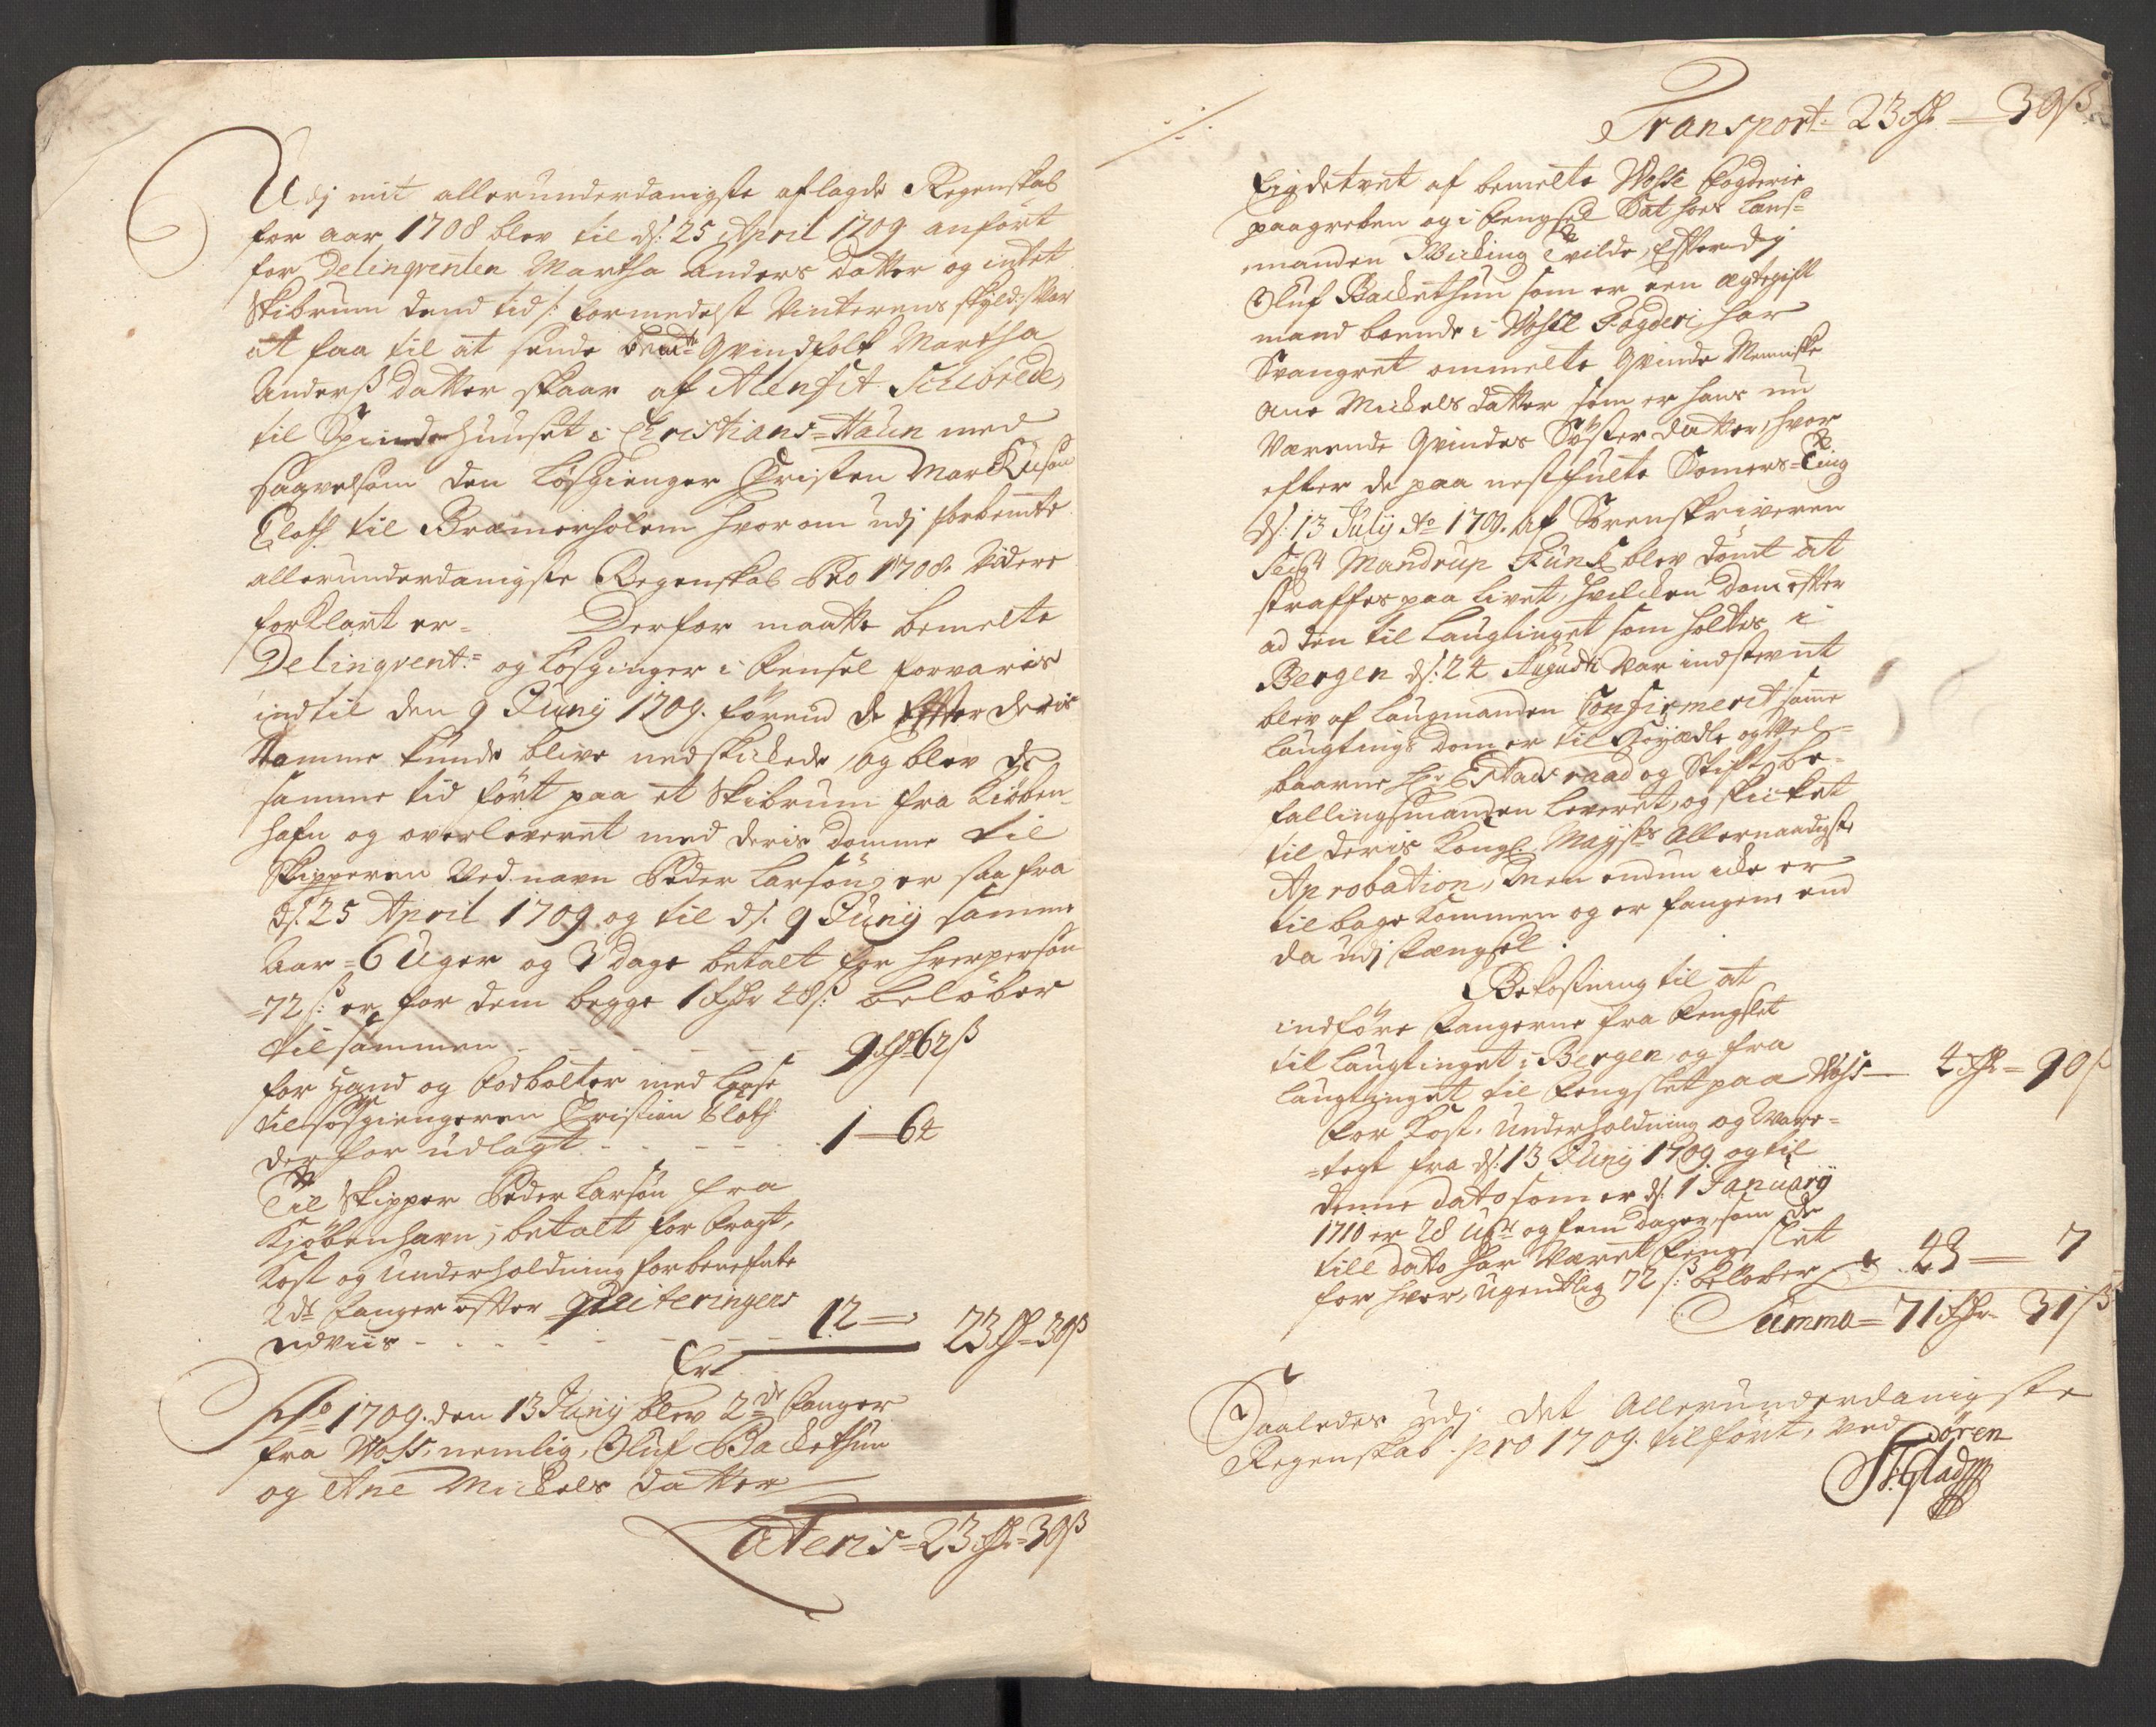 Udj mit allerunderdanigste aflagde Regenskab
for aar 1708 blev til ds: 25 April 1709 anført
for Delinqventen Martha Anders datter og intet
Skibrum dend tid /: formedelst Vinterens skyld :/ var
at faa til at sende bemte Qvindfolk Martha
Anderß datter skaar af Alenfit Schibrede,
til Spindehuuset i Christians=Haun med
saavelsom den Løsgienger Christen Markuson
Cloth til Bremerholem hvorom udj forbemte
allerunderdanigste Regenskab Pro 1708 videre
forklart er= Derfor maatte bemelte
Delinqvent:= og Løsgienger i Fensel forvaris
indtil den 9 Juny 1709. førend de efter deris
Domme kunde blive nedskickede, og blev de
samme tid ført paa et Skibrum fra Kiøben-
hafn og overleveret med deris Domme til
Skipperen ved navn Peder Larsøn, er saa fra
ds: 25 April 1709 og til ds: 9 Junij samme
Aar =6 Uger og 3 dage betalt for hver person
=72 ß: er for dem begge 1 Rdr 48 ß: beløber
tilsammen - - - - - 9 Rd 62 ß
for Haand og Fodbolter med Laase
til Løsgiengeren Christian Cloth
derfor udlagt - - - - - 1 — 64
Til Skipper Peder Larsøn fra
Kjøbenhavn, betalt for Fragt,
Kost og Underholdning for benefnte
2de Fanger efter Qviteringens
udviis - - - - - - 12 =
Er 23 Rd = 30 ß
Ao 1709. den 13 Junij blev 2de Fanger
fra Woss, nemlig, Oluf Backethun
og Ane Mickels datter
Lateris = 23 Rd = 30 ß
Transport= 23 Rd = 30 ß
Ligdetvet af bemelte Wosse Fogderie
paagreben og i Fengsel Sat hoes Lens=
manden Wicking Tvilde, Efterdj
Oluf Backethun som er een ægtegift
mand boende i Wosse Fogderj, har
Svangret ommelte Qvinde Menniske
Ane Mickels datter som er hans nu
Værende Qvindes Søster datter, hvor
efter de paa nestfulte Somers=Ting
ds: 13 July Ao 1709. af Sorenskriveren
Seigr Mandrup Funk blev dømt at
straffes paa Livet, hvilcken dom efter
ad den til Laugtinget som holtes i
Bergen ds: 24 Augusti var indstevnt
blev af Laugmanden Confirmerit samme
Laugtings dom er til Høyædle og Vel=
baarne Hr Etads raad og Stift be-
fallingsmanden leveret, og skicket
til deris Kongl. Maysts Allernaadigste
Aprobation, men endnu icke er
tilbage kommen og er fangene end
da udj Fængsel.
Bekostning til at
indføre Fangerne fra Fengslet
til Laugtinget i Bergen, og fra
Laugtinget til Fengslet paa Woss — 4 Rd = 90 ß
for Kost. Underholdning og Vare=
=tegt fra ds: 13 Junij 1709 og til
denne dato som er ds: 1 January
1710 er 28 Ugr og fem dager, som de
till dato har Været Fengslet
for hver, Ugentlig 72 ß: beløber - 43 — 7
Summa = 71 Rdr 31 ß
Saaledes udj det Allerunderdanigste
Regenskab pro 1709. tilført, Ved Søren